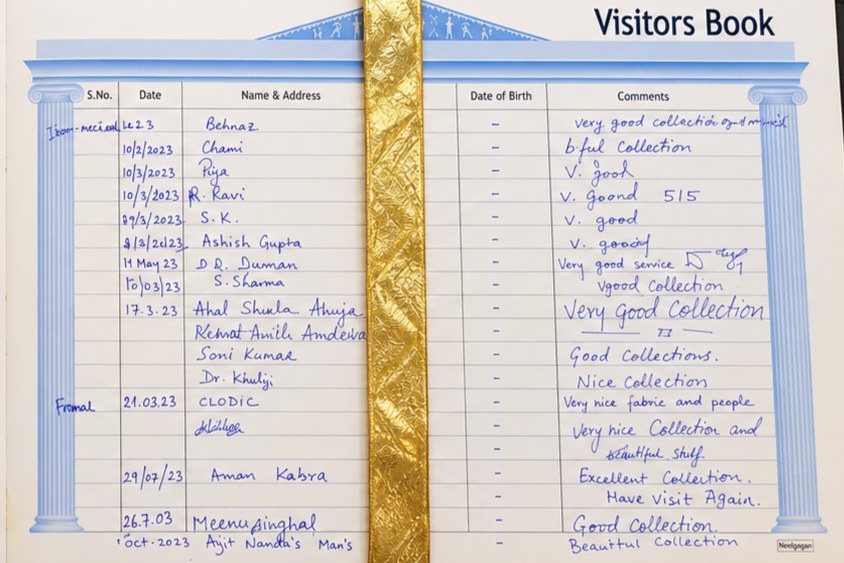 Visitors Book
S.No. Date Name & Address Date of Birth Comments
23 Behnaz - very good collection
10/2/2023 Chami - b·ful Collection
10/3/2023 Piya - V. good
10/3/2023 R. Ravi - V. goond 515
29/3/2023 S.K. - V. good
8/3/2023 Ashish Gupta - V. goody
11 May 23 D R. Duman - Very good service
10/03/23 S. Sharma - Vgood Collection
17.3.23 Ahal Shukla Ahuja - Very Good Collection
Amith Amdewa -
Soni Kumar - Good Collections.
Dr. Khuliji - Nice Collection
Fromal 21.03.23 CLODIC - Very nice fabric and people
- Very nice Collection and
- beautiful stuff.
29/07/23 Aman Kabra - Excellent Collection.
- Have Visit Again.
26.7.03 Meenu Singhal - Good Collection.
Oct-2023 Ajit Nanda's Man's - Beautful Collection
Neelgagan